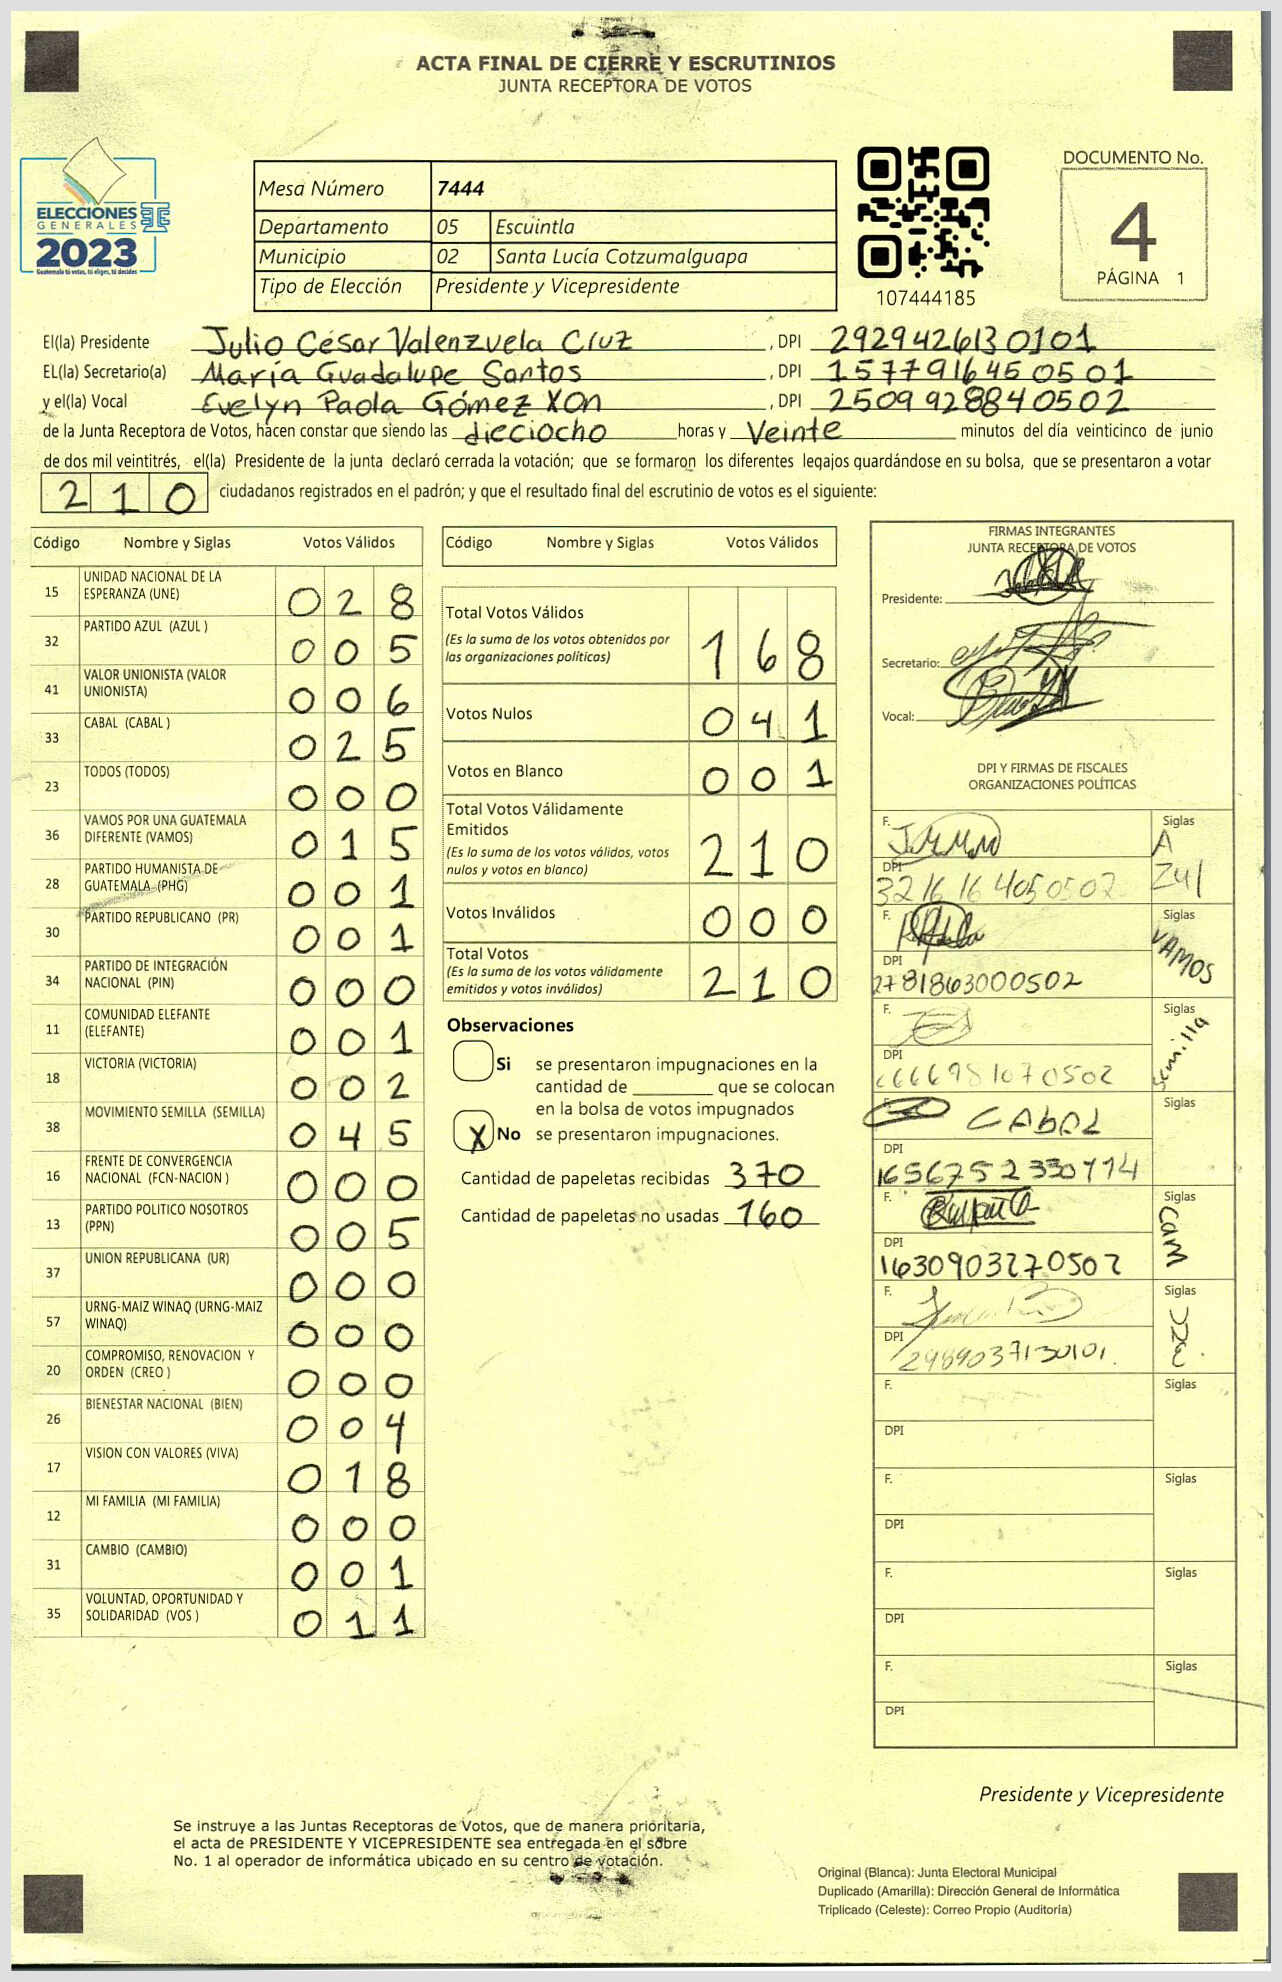 ACTA FINAL DE CIERRE Y ESCRUTINIOS
JUNTA RECEPTORA DE VOTOS
ELECCIONES
GENERALES
2023
Guatemala tú votas, tú eliges, tú decides
Mesa Número 7444
Departamento 05 Escuintla
Municipio 02 Santa Lucía Cotzumalguapa
Tipo de Elección Presidente y Vicepresidente
107444185
DOCUMENTO No.
4
PÁGINA 1
El(la) Presidente Julio César Valenzuela Cruz, DPI 2929426130101
EL(la) Secretario(a) María Guadalupe Santos, DPI 1577916450501
y el(la) Vocal Evelyn Paola Gómez Xon, DPI 2509928840502
de la Junta Receptora de Votos, hacen constar que siendo las dieciocho horas y Veinte minutos del día veinticinco de junio
de dos mil veintitrés, el(la) Presidente de la junta declaró cerrada la votación; que se formaron los diferentes legajos guardándose en su bolsa, que se presentaron a votar
210 ciudadanos registrados en el padrón; y que el resultado final del escrutinio de votos es el siguiente:
Código Nombre y Siglas Votos Válidos
15 UNIDAD NACIONAL DE LA ESPERANZA (UNE) 028
32 PARTIDO AZUL (AZUL ) 005
41 VALOR UNIONISTA (VALOR UNIONISTA) 006
33 CABAL (CABAL ) 025
23 TODOS (TODOS) 000
36 VAMOS POR UNA GUATEMALA DIFERENTE (VAMOS) 015
28 PARTIDO HUMANISTA DE GUATEMALA (PHG) 001
30 PARTIDO REPUBLICANO (PR) 001
34 PARTIDO DE INTEGRACIÓN NACIONAL (PIN) 000
11 COMUNIDAD ELEFANTE (ELEFANTE) 001
18 VICTORIA (VICTORIA) 002
38 MOVIMIENTO SEMILLA (SEMILLA) 045
16 FRENTE DE CONVERGENCIA NACIONAL (FCN-NACION ) 000
13 PARTIDO POLITICO NOSOTROS (PPN) 005
37 UNION REPUBLICANA (UR) 000
57 URNG-MAIZ WINAQ (URNG-MAIZ WINAQ) 000
20 COMPROMISO, RENOVACION Y ORDEN (CREO ) 000
26 BIENESTAR NACIONAL (BIEN) 004
17 VISION CON VALORES (VIVA) 018
12 MI FAMILIA (MI FAMILIA) 000
31 CAMBIO (CAMBIO) 001
35 VOLUNTAD, OPORTUNIDAD Y SOLIDARIDAD (VOS ) 011
Código Nombre y Siglas Votos Válidos
Total Votos Válidos 168
(Es la suma de los votos obtenidos por
las organizaciones políticas)
Votos Nulos 041
Votos en Blanco 001
Total Votos Válidamente
Emitidos 210
(Es la suma de los votos válidos, votos
nulos y votos en blanco)
Votos Inválidos 000
Total Votos 210
(Es la suma de los votos válidamente
emitidos y votos inválidos)
Observaciones
Si se presentaron impugnaciones en la
cantidad de ________ que se colocan
en la bolsa de votos impugnados
X No se presentaron impugnaciones.
Cantidad de papeletas recibidas 370
Cantidad de papeletas no usadas 160
FIRMAS INTEGRANTES
JUNTA RECEPTORA DE VOTOS
Presidente:
Secretario:
Vocal:
DPI Y FIRMAS DE FISCALES
ORGANIZACIONES POLÍTICAS
F. Siglas
AZul
DPI 3216164050502
F. Siglas
VAMOS
DPI 2781863000502
F. Siglas
Semilla
DPI
F. CABAL Siglas
DPI
F. Siglas
CAM
DPI 1630903270502
F. Siglas
UNE
DPI 2989037130101
F. Siglas
DPI
F. Siglas
DPI
F. Siglas
DPI
F. Siglas
DPI
Presidente y Vicepresidente
Se instruye a las Juntas Receptoras de Votos, que de manera prioritaria,
el acta de PRESIDENTE Y VICEPRESIDENTE sea entregada en el sobre
No. 1 al operador de informática ubicado en su centro de votación.
Original (Blanca): Junta Electoral Municipal
Duplicado (Amarilla): Dirección General de Informática
Triplicado (Celeste): Correo Propio (Auditoría)